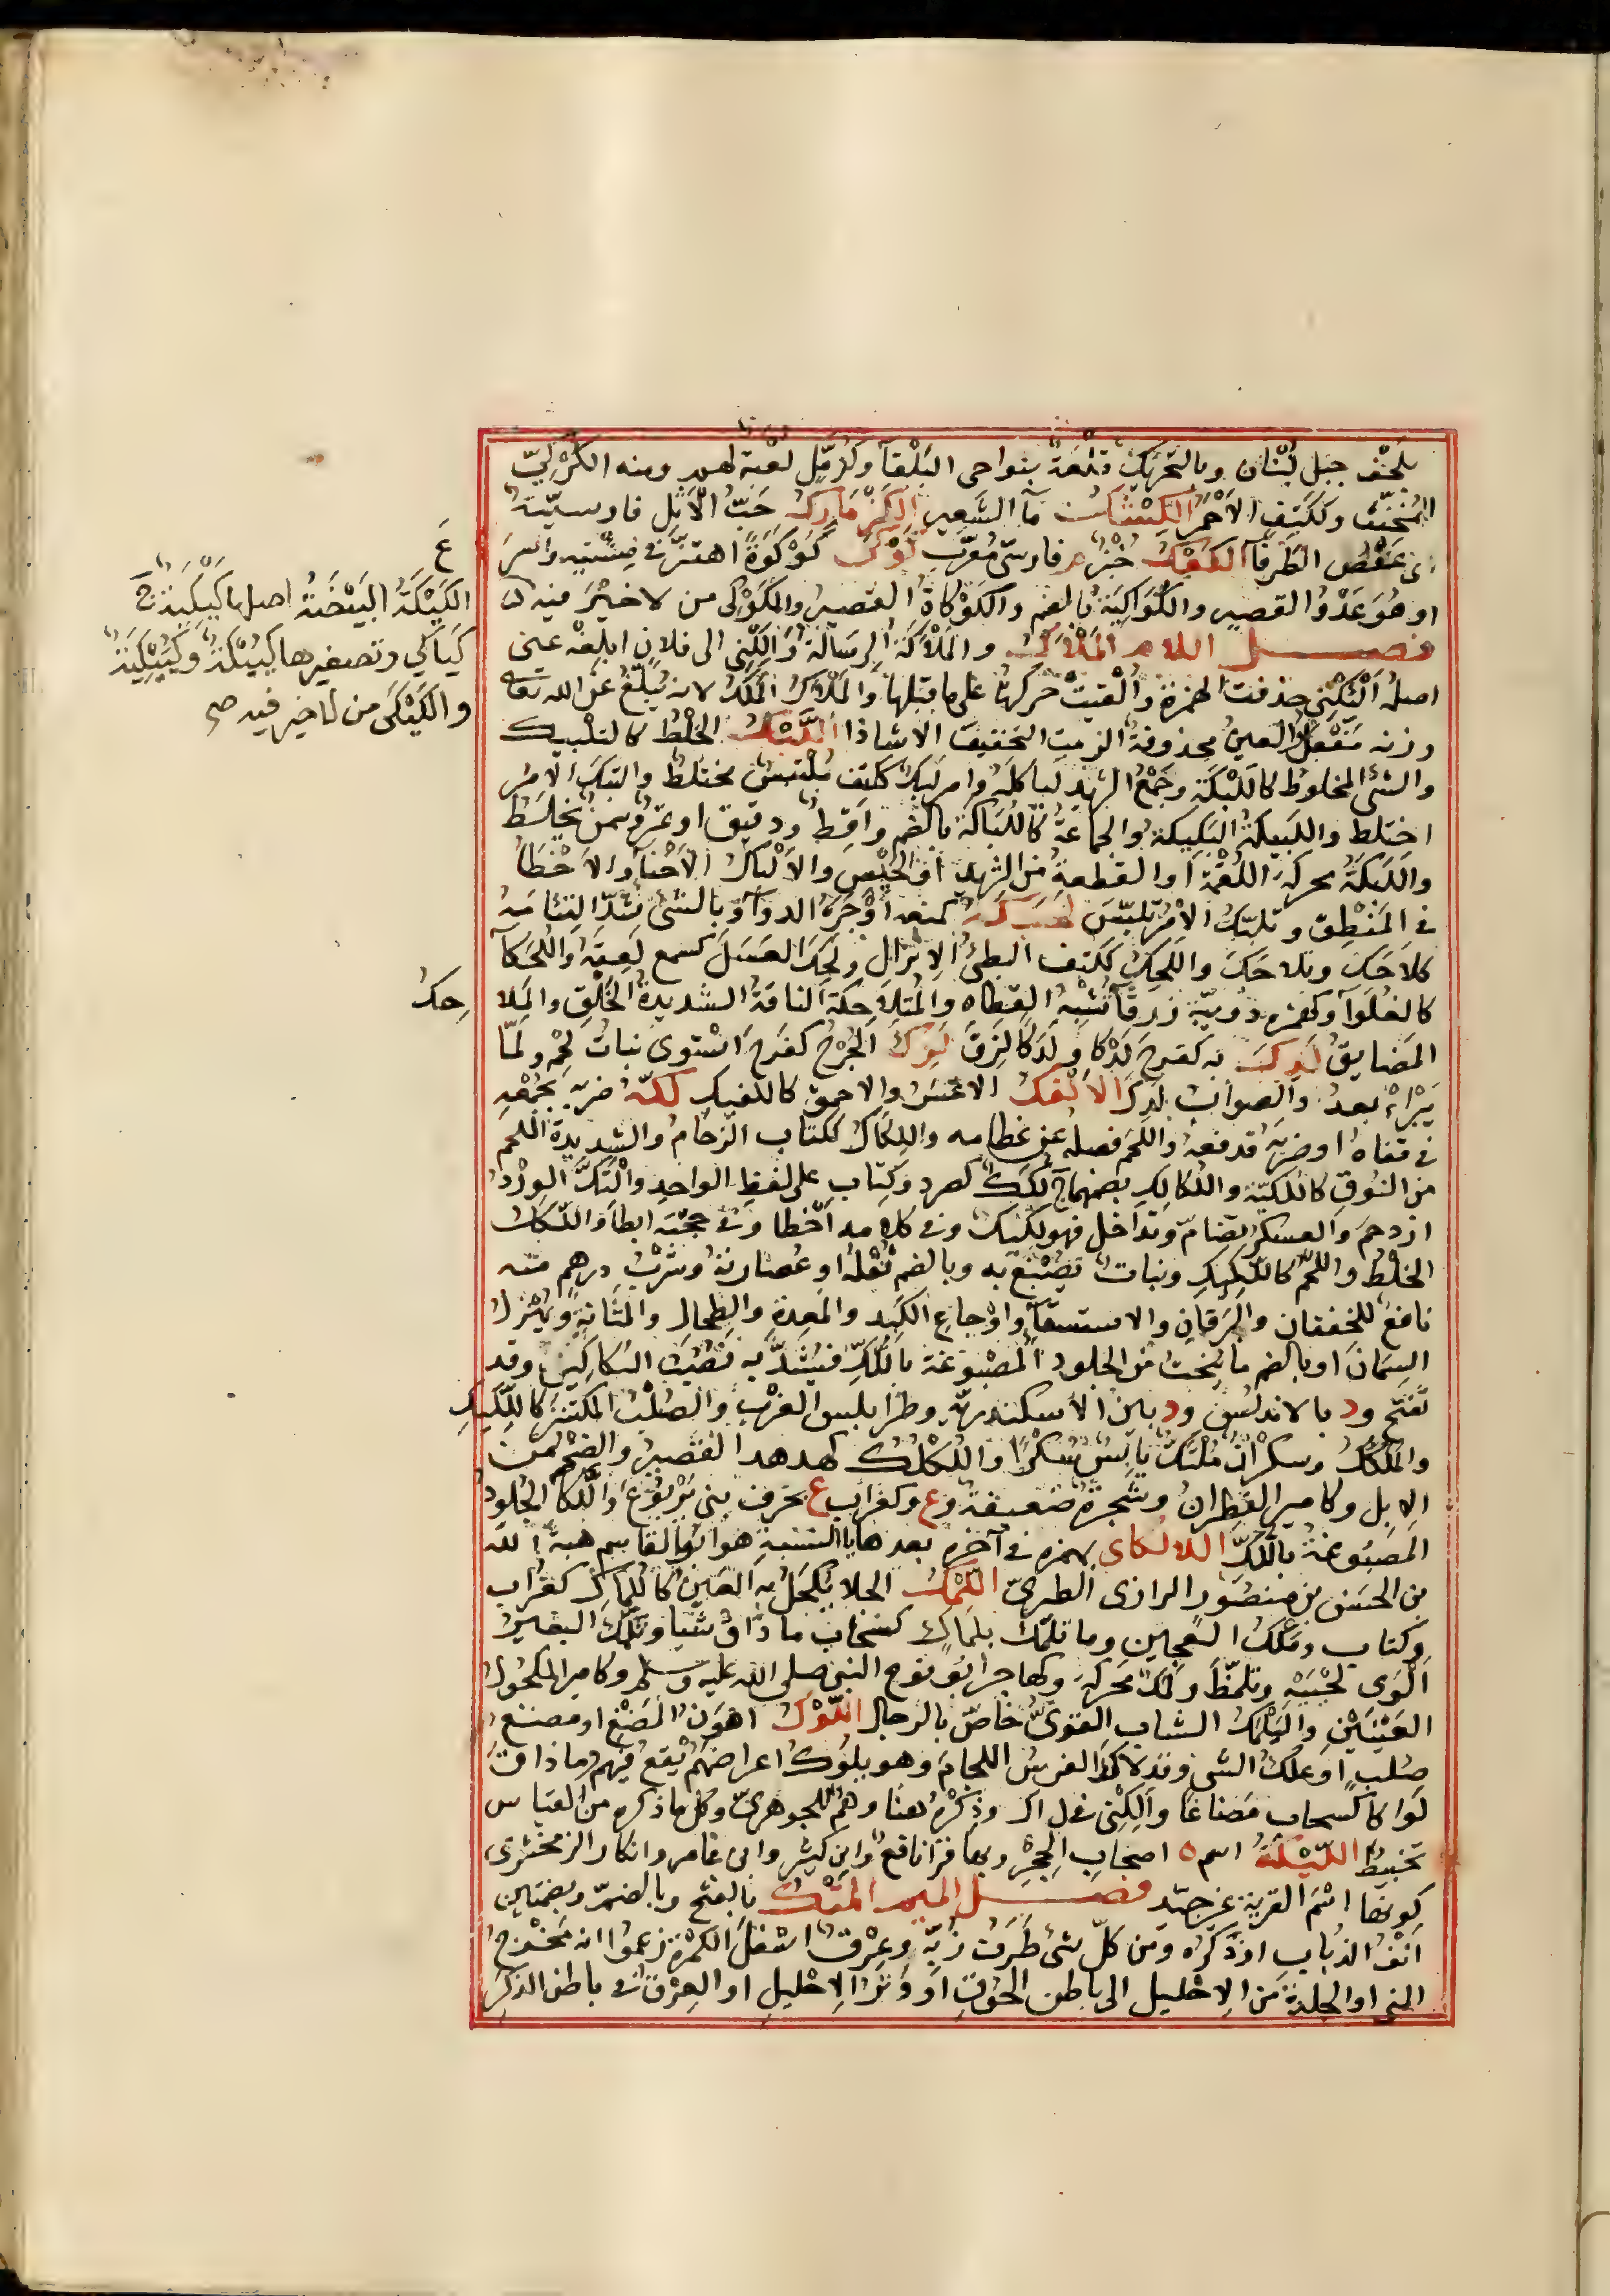 بلحف جبل لبنان وبالتحريك قلعة بنواحي البلقآ وكدمّل لعبة لهم ومنه الكرّكيّ
المخنّث وككتف الأحمر الكشك مآ الشعير الكزمازك حبّ الأثل فارسيّة
اى عفص الطرفآ الكعك خبز م فارسىّ معرّب كوك كوكوة اهتزّ في مشيته واسرع
او هو عدو القصير والكواكية بالضم والكوكاة القصير والمكوكى من لا خير فيه
فصل اللام الملأك والملأكة الرسالة وألكني الى فلان ابلغه عني
اصله ألئكني حذفت الهمزة والقيت حركتها على ما قبلها والملأك الملك لانه يبلّغ عن الله تعالى
وزنه مفعل والعين محذوفة الزمت التخفيف الا شاذا اللّبك الخلط كالتلبيك
والشئ المخلوط كاللبكة وجمع الثريد لياكله وامر لبك ككتف ملتبس مختلط والتبك الامر
اختلط واللبيكة البكيلة والجماعة كاللباكة بالضم واقط ودقيق او تمر وسمن يخلط
واللبكة محركة اللقمة او القطعة من الثريد او الحيس والالباك الاخنآ والاخطآ
في المنطق وتلبّك الامر تلبّس لحكه كمنعه اوجره الدوآ وبالشئ شدّ التئامه
كلاحك وتلاحك واللحك ككتف البطئ الانزال ولحك العسل كسمع لعقه واللحكآ
كالغلوآ وكهمزة دويبّة زرقآ تشبه العظاه والمتلاحكة الناقة الشديدة الخلق والملا
حك
المضايق لدك به كفرح لدكا ولدكا لزق لزك الجرح كفرح استوى نبات لحمه ولمّا
يبرأ بعد والصواب لدك الالفك الاعسر والاحمق كاللفيك لكّه ضربه بجمعه
في قفاه او ضربه فدفعه واللحم فصله عن عظامه واللكاك ككتاب الزحام والشديدة اللحم
من النوق كاللكيّة واللكالك بضمهما ج لكك كصرد وكتاب على لفظ الواحد والتكّ الورد
ازدحم والعسكر تضامّ وتداخل فهو لكيك وفي كلامه اخطا وفي حجّته ابطأ واللّكّ
الخلط واللحم كاللّكيك ونبات يصبغ به وبالضم ثفله او عصارته وشرب درهم منه
نافع للخفقان واليرقان والاستسقآ واوجاع الكبد والمعدة والطحال والمثانة ويهزل
السمان او بالضم ما ينحت من الجلود المصبوغة باللّكّ فيشدّ به نصيب السكاكين وقد
تفتح ود بالاندلس ود بين الاسكندريّة وطرابلس الغرب والصلب المكتنز كاللّكيك
والملكّك وسكران ملتكّ يابس سكرا واللكلك كهدهد القصير والضخم من
الابل وكامير القطران وشجرة ضعيفة وع وكغراب ع بحزن بني يربوع واللّكّآ الجلود
المصبوغة باللّكّ اللالكائ بهمزه في آخره بعدها يا النسبة هو ابو القاسم هبة الله
من الحسن بن منصور الرازى الطبرىّ اللّمك الجلا يكحل به العين كاللماك كغراب
وكتاب وملك العجين وما تلمّك بلماك كسحاب ما ذاق شيا وتلمّك البعير
ألوى لحييه وتلمّظ ولمك محركة وكهاجر ابو نوح النبي صلى الله عليه وسلم وكامير المكحول
العينين واليلمك الشاب القوىّ خاصّ بالرجال اللّوك اهون المضغ او مضغ
صلب او علك الشئ وقد لاك الفرس اللجام وهو يلوك اعراضهم يقع فيهم وما ذاق
لواكا كسحاب مضاغا وألكني في ال ك وذكره هنا وهم للجوهرىّ وكل ما ذكره من القياس
تخبيط اللّيكة اسم ه اصحاب الحجر وبها قرأ نافع وابن كثير وابن عامر وانكار الزمخشرى
كونها اسم القرية غير جيّد فصل الميم المتك بالفتح وبالضمّ وبضمتين
انف الذباب او ذكره ومن كلّ شئ طرف زبّه وعرق اسفل الكمرة زعموا انه مخرج
المني او الجلدة من الاحليل الى باطن الحوق او وتر الاحليل او العرق في باطن الذكر
ع
الكيكة البيضة اصلها كيكية ج
كياكي وتصغيرها كييكة وكييكية
والكيكى من لا خير فيه صح